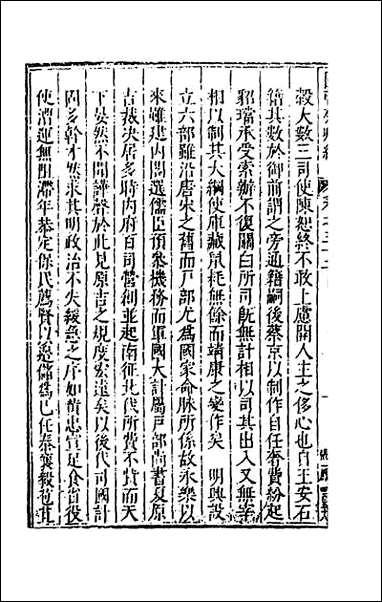 穀大數三司使陳恕終不敢上慮開人主之侈心也自王安石
籍其數於御前謂之旁通籍嗣後蔡京以制作自任奢費紛起
貂璫承受索辦不復關白所司旣無計相以司其出入又無宰
相以制其大綱使庫藏鼠耗無餘而靖康之變作矣　明興設
立六部雖沿唐宋之舊而戸部尤爲國家命脉所係故永樂以
來雖建內閣選儒臣預參機務而軍國大計屬戸部尚書夏原
吉裁决居多時內府百司營剏並起南征北伐所費不貲而天
下晏然不聞譁聲於此見原吉之規度宏遠矣以後代司國計
固多幹才然求其明政治不失緩急之序如黄忠宣足食省役
使漕運無阻滯年恭定保民薦賢以邊儲爲己任秦襄毅苞苴